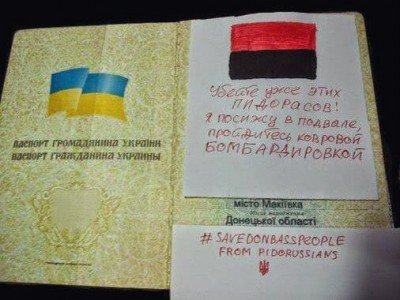 ПАСПОРТ ГРОМАДЯНИНА УКРАЇНИ
ПАСПОРТ ГРАЖДАНИНА УКРАИНЫ
Убейте уже этих
ПИДОРАСОВ!
Я посижу в подвале,
пройдитесь ковровой
БОМБАРДИРОВКОЙ
місто Макіївка
Донецької області
# SAVEDONBASSPEOPLE
FROM PIDORUSSIANS